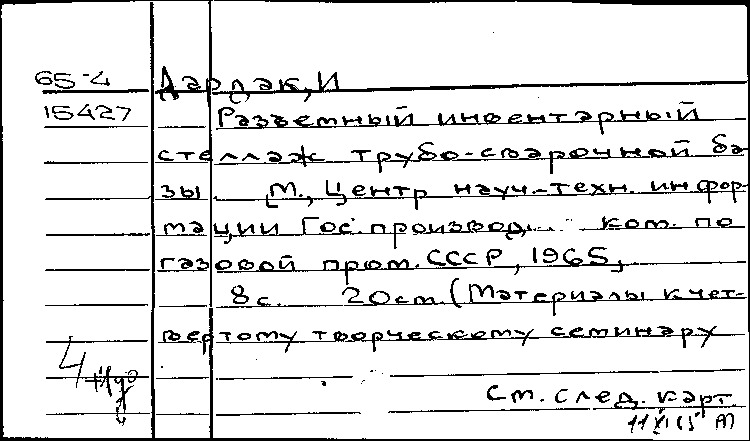 65-4 Дардак, И
15427 Разъемный инвентарный
стеллаж трубо-сварочной ба-
зы. М., Центр науч.-техн. инфор-
мации Гос. производ. ком. по
газовой пром. СССР, 1965,
8 с. 20 см. (Материалы к чет-
вертому творческому семинару
4
См. след. карт.